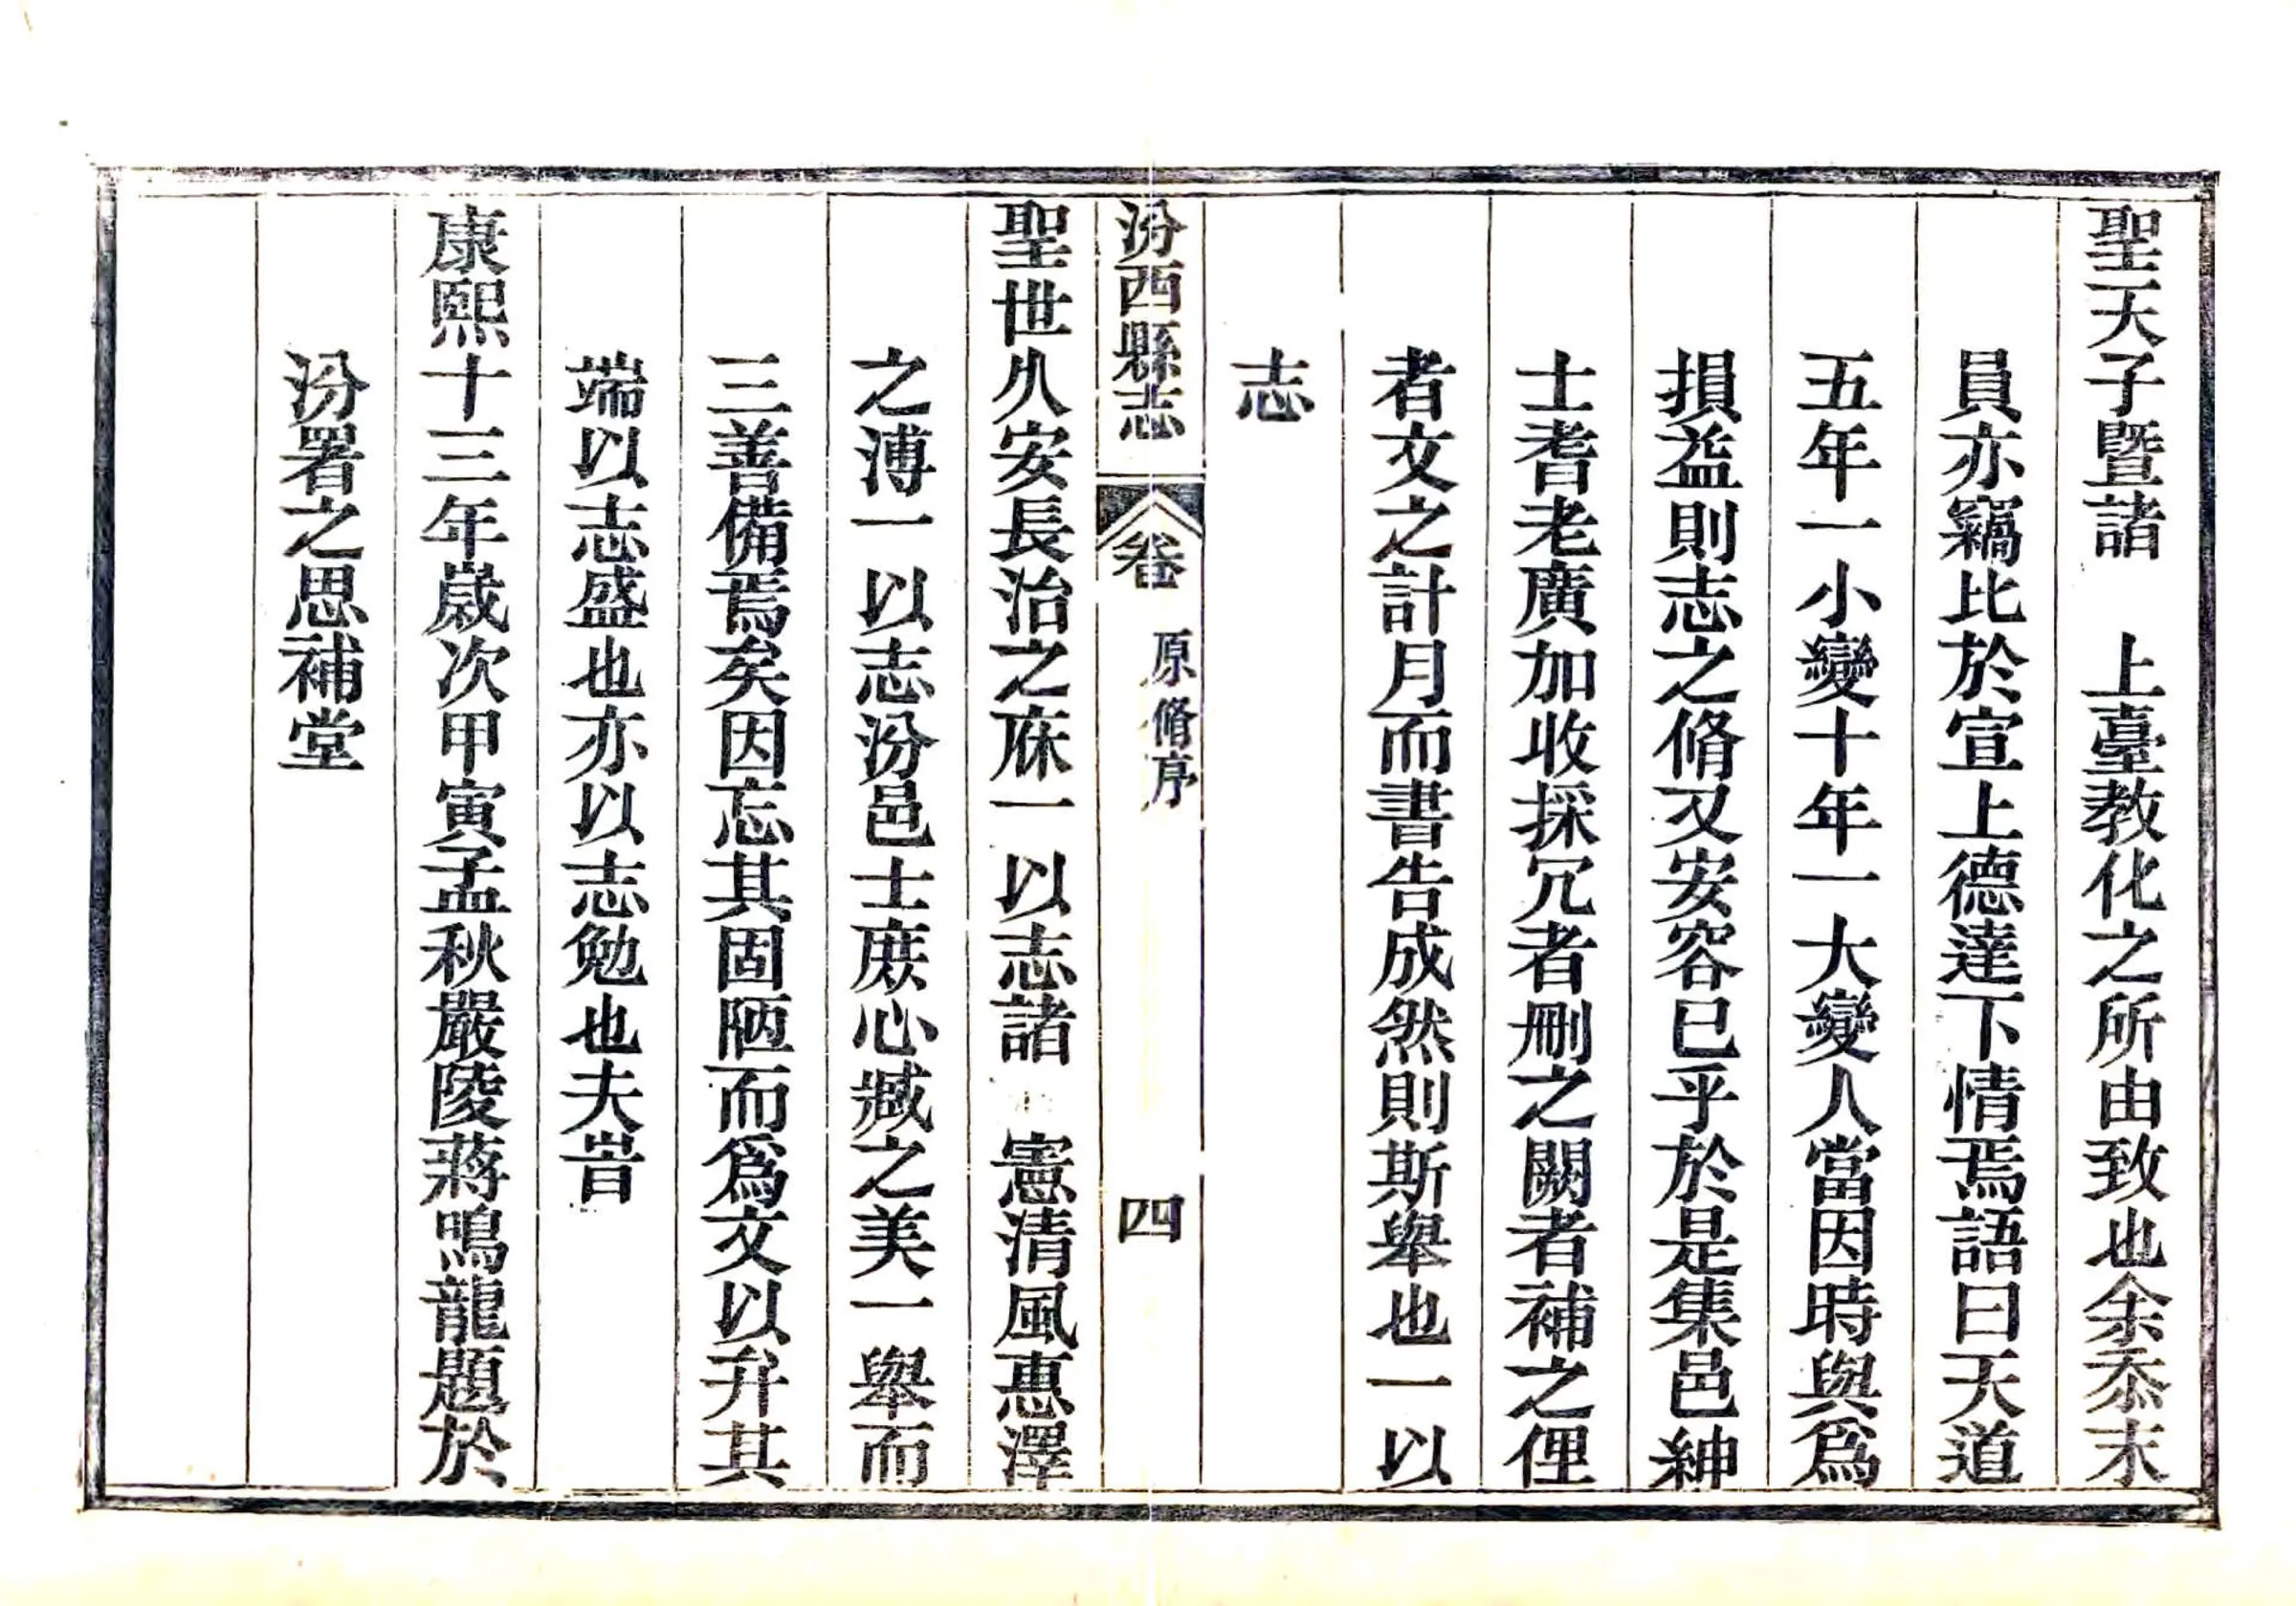 聖天子暨諸　上臺教化之所由致也余忝末
員亦竊比於宣上德達下情焉語曰天道
五年一小變十年一大變人當因時與爲
損益則志之脩又安容已乎於是集邑紳
士耆老廣加收採冗者刪之闕者補之俚
者文之計月而書告成然則斯舉也一以
志
汾西縣志
卷
原脩序
四
聖世久安長治之庥一以志諸　憲清風惠澤
之溥一以志汾邑士庶心臧之美一舉而
三善備焉矣因忘其固陋而爲文以弁其
端以志盛也亦以志勉也夫旹
康熙十三年歲次甲寅孟秋嚴陵蔣鳴龍題於
汾署之思補堂